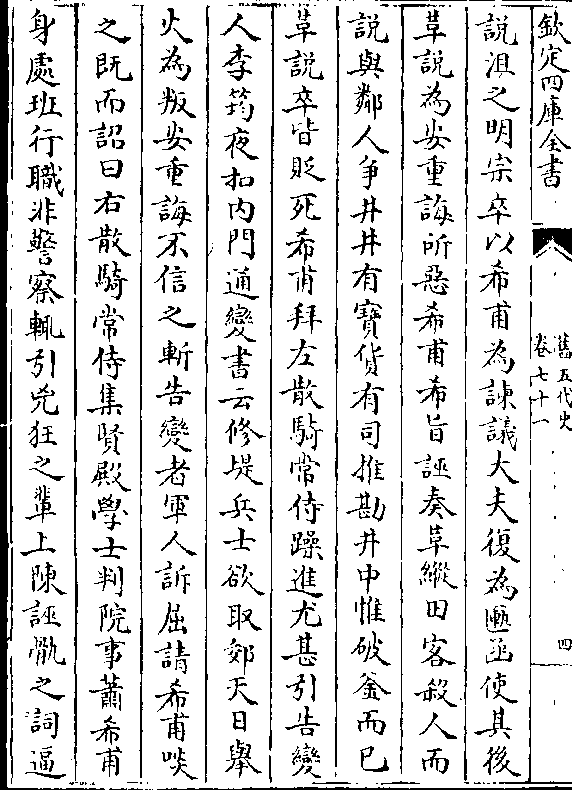 欽定四庫全書
舊五代史
卷七十一
四
說沮之明宗卒以希甫為諫議大夫復為匭函使其後
革說為安重誨所惡希甫希旨誣奏革縱田客殺人而
說與鄰人爭井井有寳貨有司推勘井中惟破釜而已
革說卒皆貶死希甫拜左散騎常侍躁進尤甚引告變
人李筠夜扣内門通變書云修堤兵士欲取郊天日舉
火為叛安重誨不信之斬告變者軍人訴屈請希甫啖
之既而詔曰右散騎常侍集賢殿學士判院事蕭希甫
身處班行職非警察輒引兇狂之輩上陳誣骩之詞逼